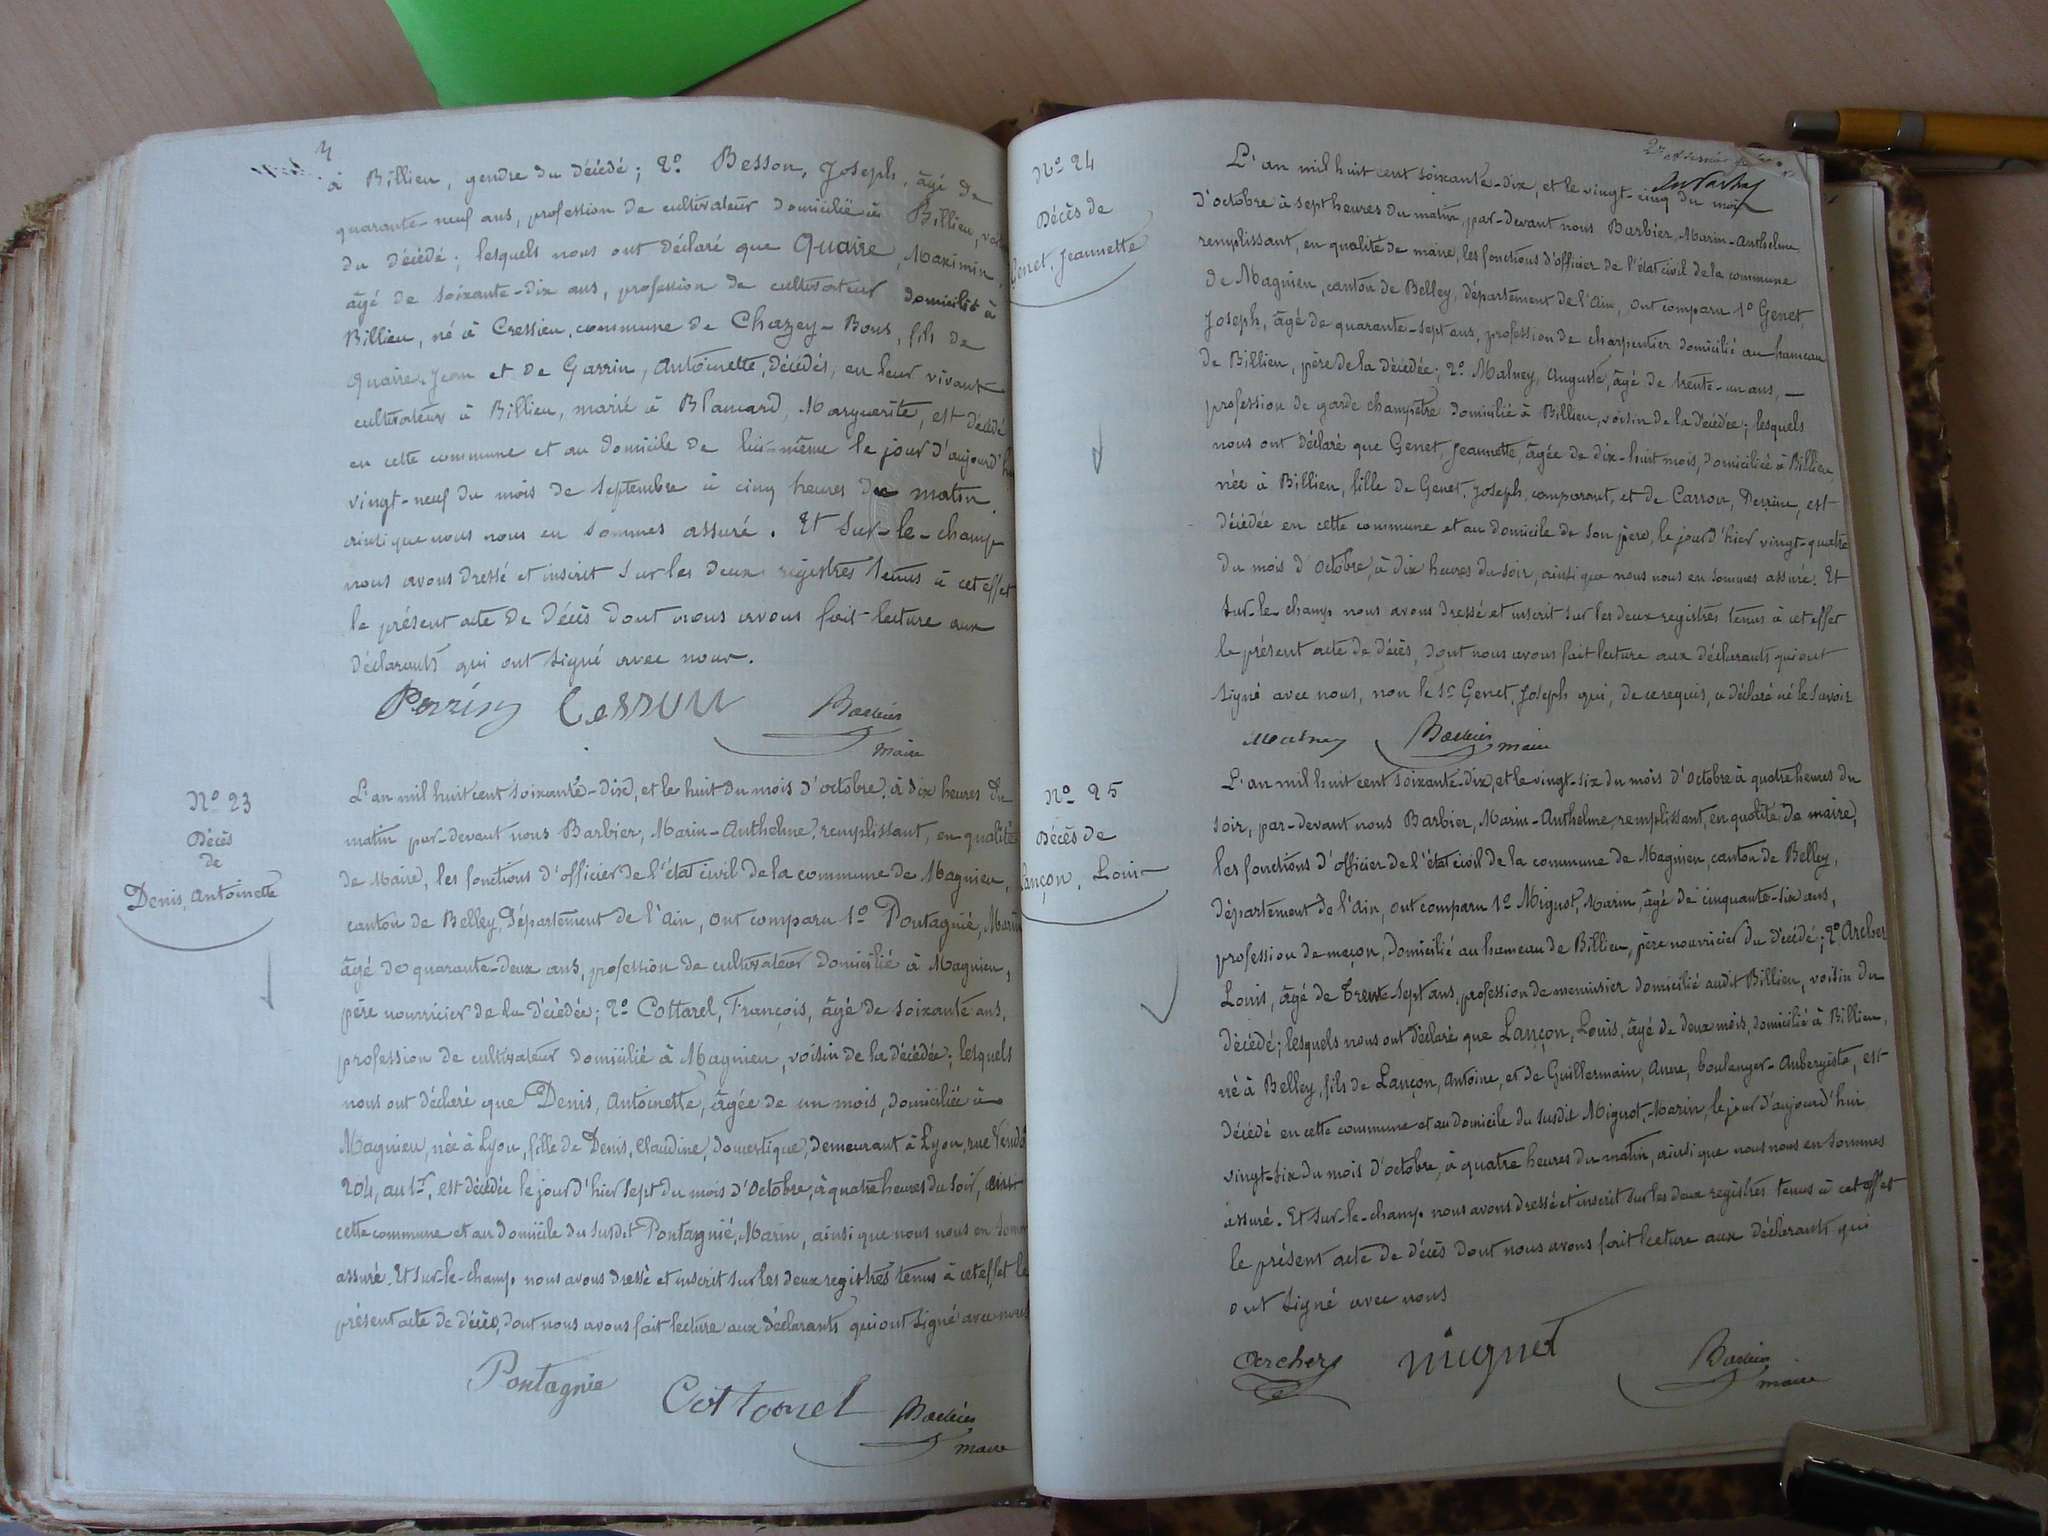 à Billieu, gendre du décédé; 2º Besson, Joseph, âgé de
quarante-neuf ans, profession de cultivateur domicilié à Billieu,
du décédé; lesquels nous ont déclaré que Quaire, Maximin,
âgé de soixante-dix ans, profession de cultivateur domicilié à
Billieu, né à Cressieu, commune de Chazey-Bons, fils de
Quaire, Jean et de Garrin, Antoinette, décédés, en leur vivant
cultivateur à Billieu, marié à Blancard, Marguerite, est décédé
en cette commune et au domicile de lui-même le jour d'aujourd'hui
vingt-neuf du mois de septembre à cinq heures du matin
ainsi que nous nous en sommes assuré. Et sur-le-champ
nous avons dressé et inscrit sur les deux registres tenus à cet effet
le présent acte de décès dont nous avons fait lecture aux
déclarants qui ont signé avec nous.
Perrin Besson Barbier
maire
Nº 23
Décès
de
Denis, Antoinette
L'an mil huit cent soixante-dix, et le huit du mois d'octobre, à dix heures du
matin par-devant nous Barbier, Marin-Anthelme, remplissant, en qualité
de Maire, les fonctions d'officier de l'état civil de la commune de Magnieu,
canton de Belley, Département de l'Ain, ont comparu 1º Pontagnié, Marin
âgé de quarante-deux ans, profession de cultivateur domicilié à Magnieu,
père nourricier de la décédée; 2º Cottarel, François, âgé de soixante ans,
profession de cultivateur domicilié à Magnieu, voisin de la décédée; lesquels
nous ont déclaré que Denis, Antoinette, âgée de un mois, domiciliée à
Magnieu, née à Lyon, fille de Denis, Claudine, domestique, demeurant à Lyon, rue
204, au 1er, est décédée le jour d'hier sept du mois d'octobre, à quatre heures du soir, en
cette commune et au domicile du susdit Pontagnié, Marin, ainsi que nous nous en
assuré. Et sur-le-champ nous avons dressé et inscrit sur les deux registres tenus à cet effet le
présent acte de décès, dont nous avons fait lecture aux déclarants qui ont signé avec nous
Pontagnié Cottarel Barbier
maire
Nº 24
Décès de
Genet, Jeannette
L'an mil huit cent soixante-dix, et le vingt-cinq du mois
d'octobre à sept heures du matin, par-devant nous Barbier, Marin-Anthelme
remplissant, en qualité de maire, les fonctions d'officier de l'état civil de la commune
de Magnieu, canton de Belley, département de l'Ain, ont comparu 1º Genet,
Joseph, âgé de quarante-sept ans, profession de charpentier domicilié au hameau
de Billieu, père de la décédée; 2º Malney, Auguste, âgé de trente-un ans,
profession de garde champêtre domicilié à Billieu, voisin de la décédée; lesquels
nous ont déclaré que Genet, Jeannette, âgée de dix-huit mois, domiciliée à Billieu,
née à Billieu, fille de Genet, Joseph, comparant, et de Carron, Perrine, est
décédée en cette commune et au domicile de son père, le jour d'hier vingt-quatre
du mois d'octobre, à dix heures du soir, ainsi que nous nous en sommes assuré. Et
sur-le-champ nous avons dressé et inscrit sur les deux registres tenus à cet effet
le présent acte de décès, dont nous avons fait lecture aux déclarants qui ont
signé avec nous, non le Sr Genet, Joseph qui, de ce requis, a déclaré ne le savoir
Malney Barbier maire
Nº 25
Décès de
Lançon, Louis
L'an mil huit cent soixante-dix, et le vingt-six du mois d'octobre à quatre heures du
soir, par-devant nous Barbier, Marin-Anthelme, remplissant, en qualité de maire,
les fonctions d'officier de l'état civil de la commune de Magnieu, canton de Belley,
département de l'Ain, ont comparu 1º Mignot, Marin, âgé de cinquante-six ans,
profession de maçon, domicilié au hameau de Billieu, père nourricier du décédé; 2º Archer
Louis, âgé de trente-sept ans, profession de menuisier domicilié audit Billieu, voisin du
décédé; lesquels nous ont déclaré que Lançon, Louis, âgé de deux mois, domicilié à Billieu,
né à Belley, fils de Lançon, Antoine, et de Guillermain, Anne, boulanger-Aubergiste, est
décédé en cette commune et au domicile du susdit Mignot, Marin, le jour d'aujourd'hui
vingt-six du mois d'octobre, à quatre heures du matin, ainsi que nous nous en sommes
assuré. Et sur-le-champ nous avons dressé et inscrit sur les deux registres tenus à cet effet
le présent acte de décès dont nous avons fait lecture aux déclarants qui
ont signé avec nous
Archer mignot Barbier
maire